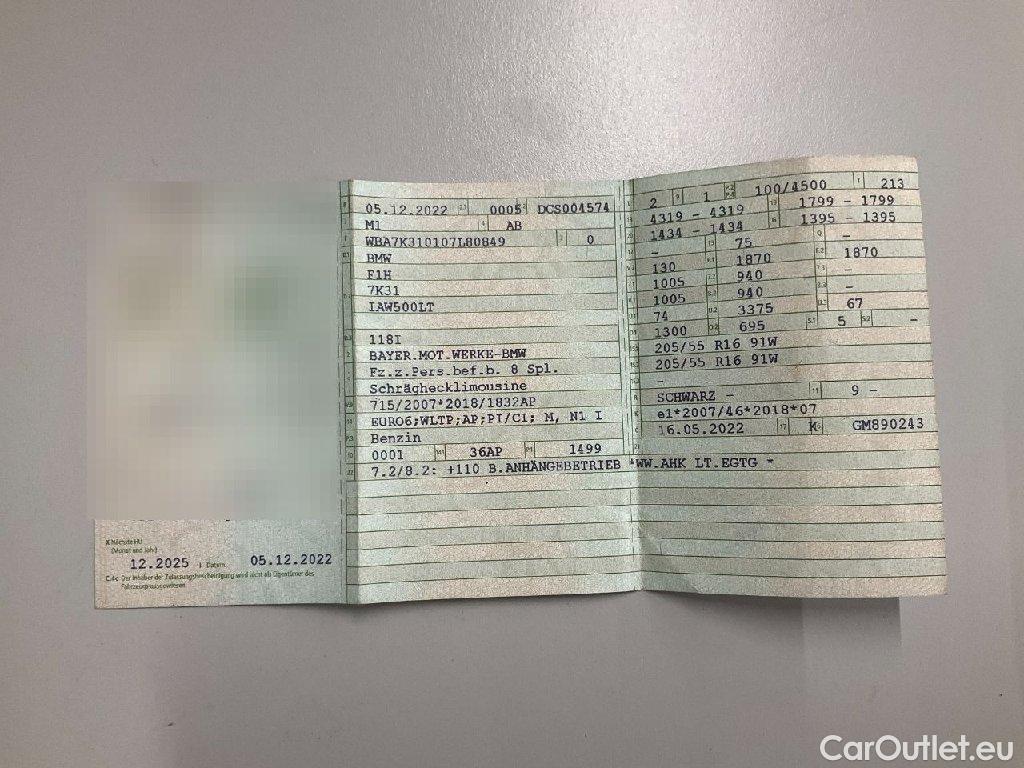 05.12.2022 0005 DCS004574
M1 AB
WBA7K310107L80849 0
BMW
F1H
7K31
IAW500LT
118I
BAYER.MOT.WERKE-BMW
Fz.z.Pers.bef.b. 8 Spl.
Schräghecklimousine
715/2007*2018/1832AP
EURO6;WLTP;AP;PI/CI; M, N1 I
Benzin
0001 36AP 1499
7.2/8.2: +110 B.ANHÄNGEBETRIEB *WW.AHK LT.EGTG *
2 1 100/4500 213
4319 - 4319 1799 - 1799
1434 - 1434 1395 - 1395
- 75 -
130 1870 1870
1005 940 -
1005 940 -
74 3375 67
1300 695 5 -
205/55 R16 91W
205/55 R16 91W
-
SCHWARZ - 9 -
e1*2007/46*2018*07
16.05.2022 K GM890243
Nächste HU
(Monat und Jahr)
12.2025 I Datum 05.12.2022
C.4c Der Inhaber der Zulassungsbescheinigung wird nicht als Eigentümer des
Fahrzeugs ausgewiesen.
CarOutlet.eu